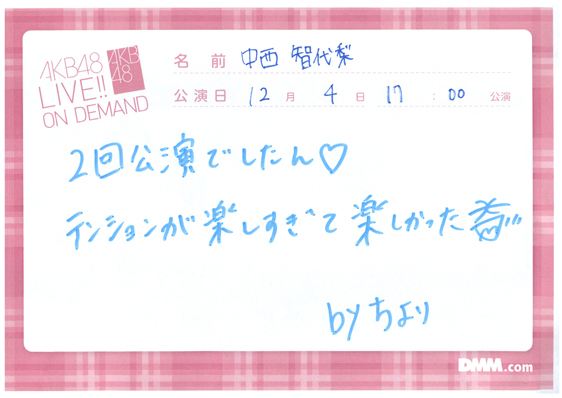 AKB48
LIVE!!
ON DEMAND
AKB
48
名 前 中西 智代梨
公演日 12 月 4 日 17 : 00 公演
2回公演でしたん♡
テンションが楽しすぎて楽しかった
by ちより
DMM.com